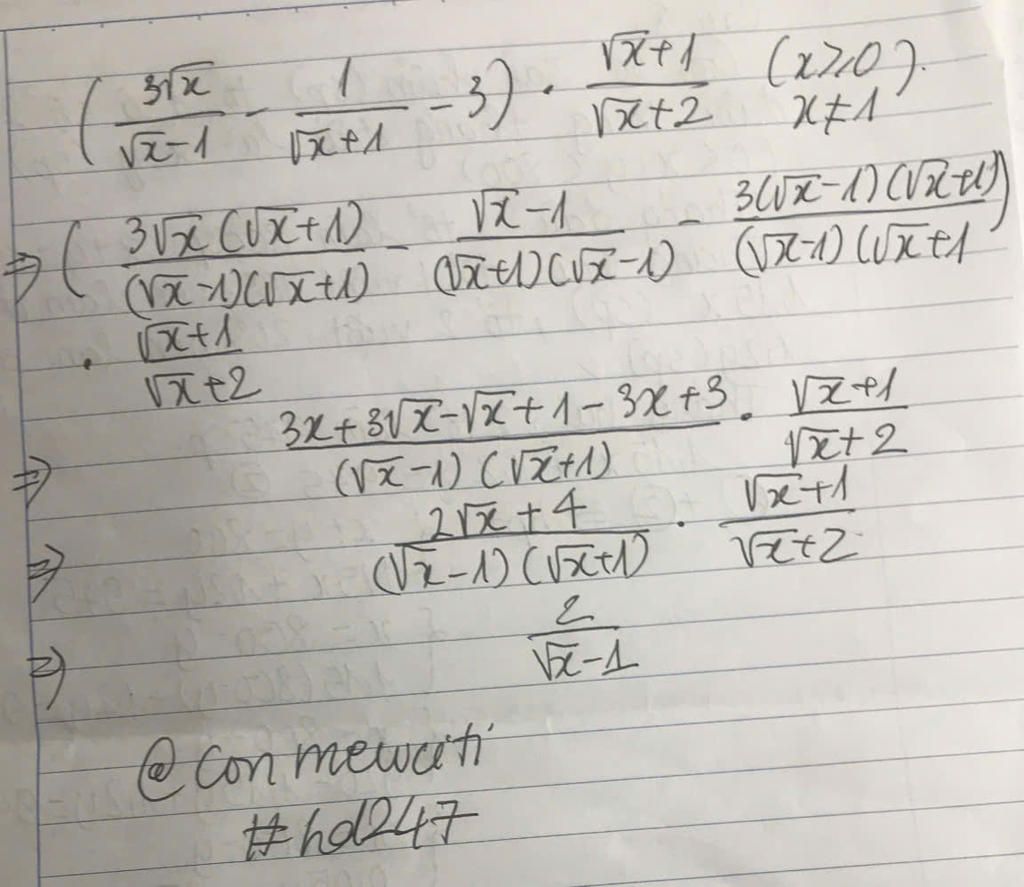 (3√x/(√x-1) - 1/(√x+1) - 3) · (√x+1)/(√x+2) (x≥0).
x≠1
⇒ (3√x(√x+1)/((√x-1)(√x+1)) - (√x-1)/((√x+1)(√x-1)) - 3(√x-1)(√x+1)/((√x-1)(√x+1)
· (√x+1)/(√x+2)
⇒ (3x+3√x-√x+1-3x+3)/((√x-1)(√x+1)) · (√x+1)/(√x+2)
⇒ (2√x+4)/((√x-1)(√x+1)) · (√x+1)/(√x+2)
⇒ 2/(√x-1)
@conmewciti
#hd247